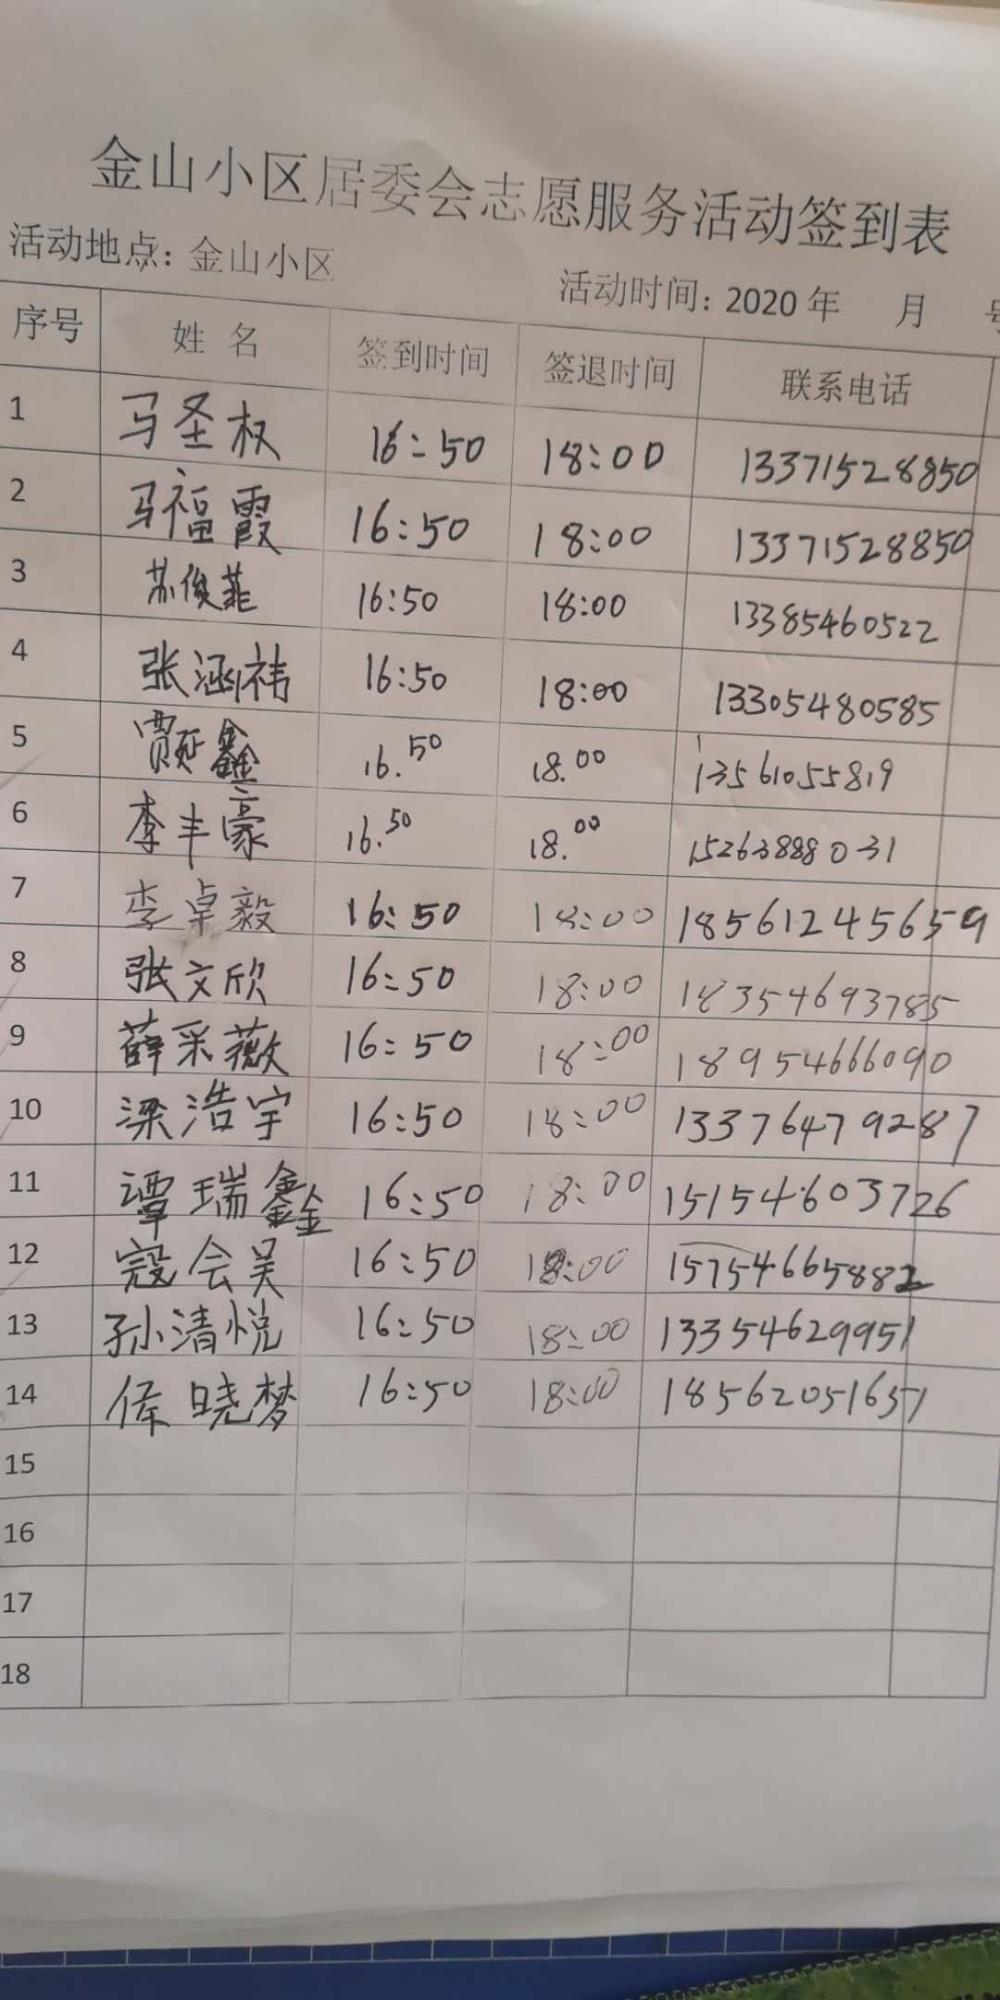 金山小区居委会志愿服务活动签到表
活动地点：金山小区 活动时间：2020年 月 号
序号 姓 名 签到时间 签退时间 联系电话
1 马圣权 16:50 18:00 13371528850
2 马福霞 16:50 18:00 13371528850
3 苏俊菲 16:50 18:00 13385460522
4 张涵祎 16:50 18:00 13305480585
5 贾延鑫 16.50 18.00 13561055819
6 李丰豪 16.50 18.00 15263888031
7 李卓毅 16:50 18:00 18561245659
8 张文欣 16:50 18:00 18354693785
9 薛采薇 16:50 18:00 18954666090
10 梁浩宇 16:50 18:00 13376479287
11 谭瑞鑫 16:50 18:00 15154603726
12 寇会吴 16:50 18:00 15754665882
13 孙清悦 16:50 18:00 13354629951
14 侯晓梦 16:50 18:00 18562051651
15
16
17
18